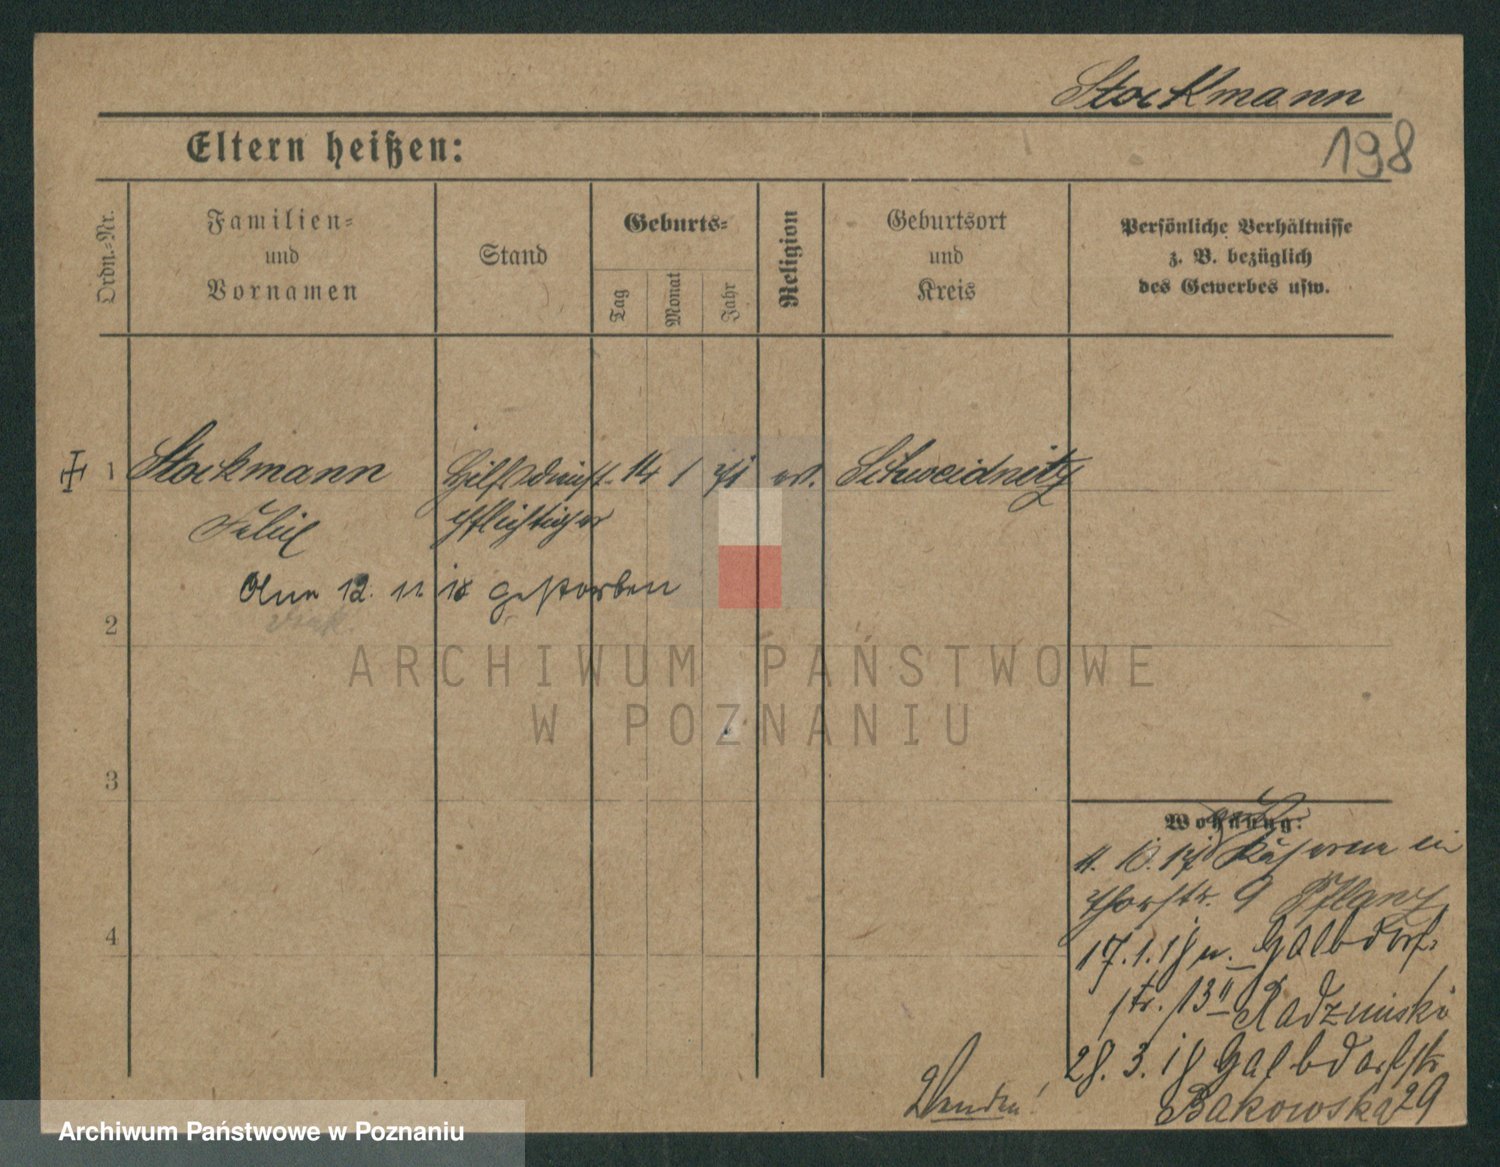 Stockmann
198
Eltern heißen:
Ordn.=Nr.
Familien=
und
Vornamen
Stand
Geburts=
Tag
Monat
Jahr
Religion
Geburtsort
und
Kreis
Persönliche Verhältnisse
z. B. bezüglich
des Gewerbes usw.
1 Stockmann Hilfsdienst- 14 1 71 ev. Schweidnitz
Felix pflichtiger
12. 11. 18 gestorben
2
3
4
Wohnung:
11. 10. 17
9
17. 1. 18 v. Halbdorf-
str. 13 II Radzminski
28. 3. 18 Halbdorfstr
Bakowska 29
Wenden!
ARCHIWUM PAŃSTWOWE
W POZNANIU
Archiwum Państwowe w Poznaniu